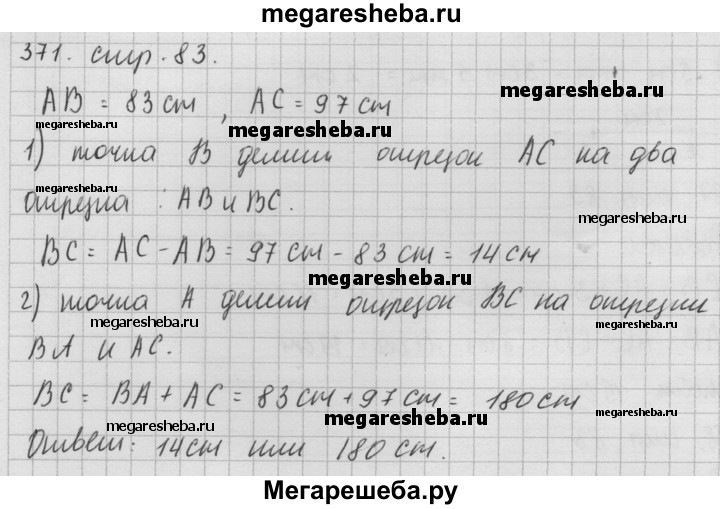 megaresheba.ru
371. стр. 83.
AB = 83 см, AC = 97 см
megaresheba.ru
megaresheba.ru
megaresheba.ru
1) точка B делит отрезок AC на два
megaresheba.ru
megaresheba.ru
отрезка : AB и BC.
BC = AC - AB = 97 см - 83 см = 14 см
megaresheba.ru
2) точка A делит отрезок BC на отрезки
megaresheba.ru
megaresheba.ru
BA и AC.
BC = BA + AC = 83 см + 97 см = 180 см
megaresheba.ru
megaresheba.ru
megaresheba.ru
Ответ: 14 см или 180 см.
Мегарешеба.ру